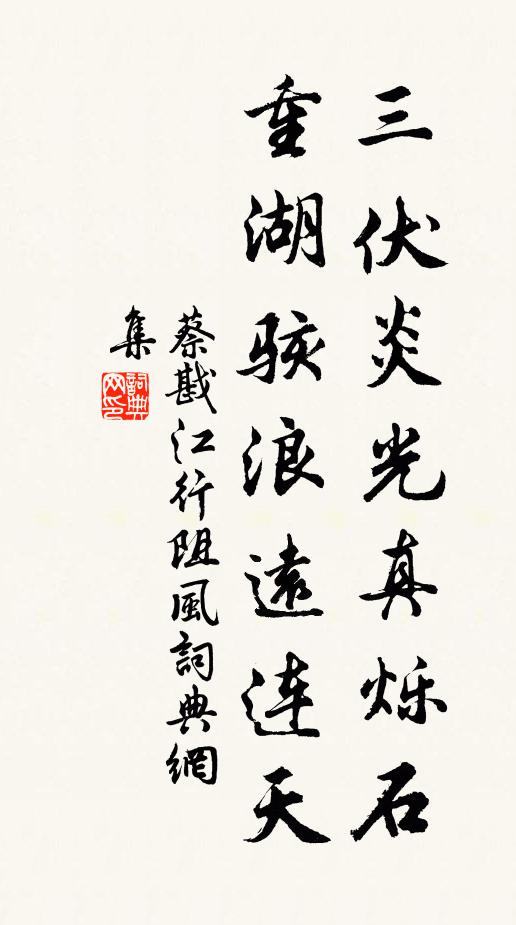 三伏炎光真烁石
重湖骇浪遠连天
蔡戡江行阻風詞典網
集
詞典
网印